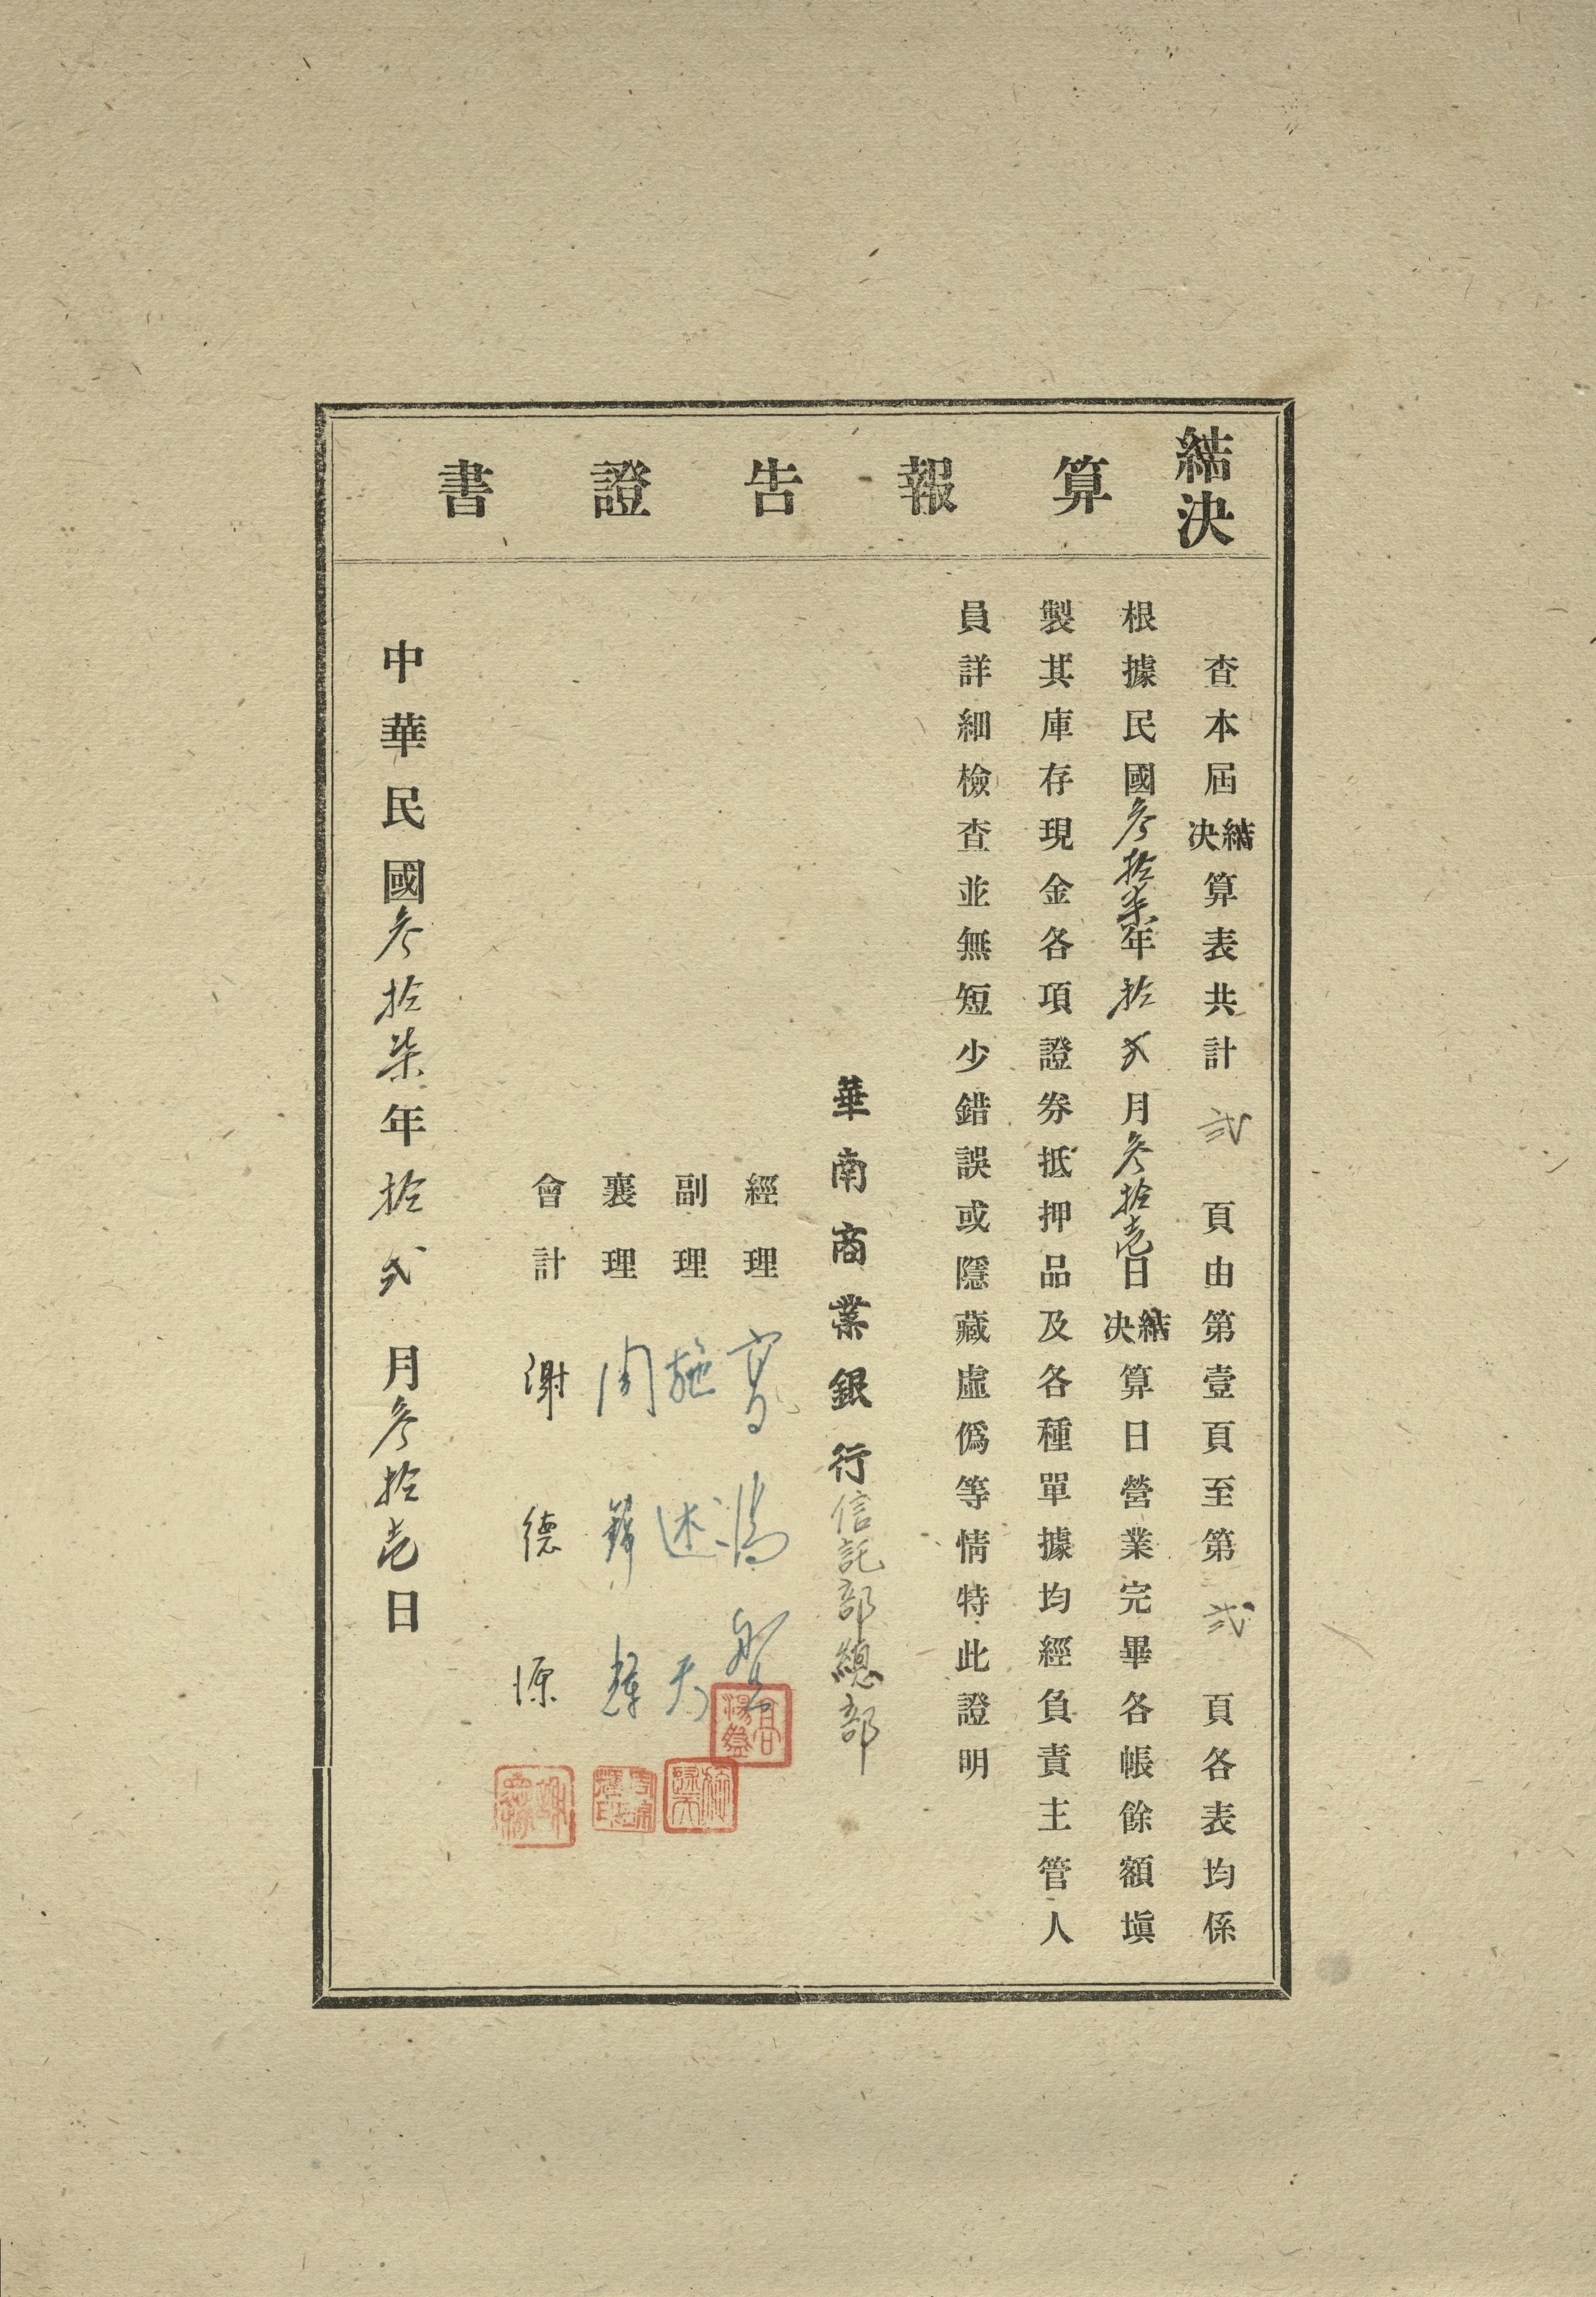 結決算報告證書
查本屆結決算表共計弍頁由第壹頁至第弍頁各表均係
根據民國叁拾柒年拾弍月叁拾壱日結決算日營業完畢各帳餘額塡
製其庫存現金各項證券抵押品及各種單據均經負責主管人
員詳細檢查並無短少錯誤或隱藏虛僞等情特此證明
華南商業銀行信託部總部
經理 高湯盤
副理 施述天
襄理 周錦輝
會計 謝德源
中華民國叁拾柒年拾弍月叁拾壱日